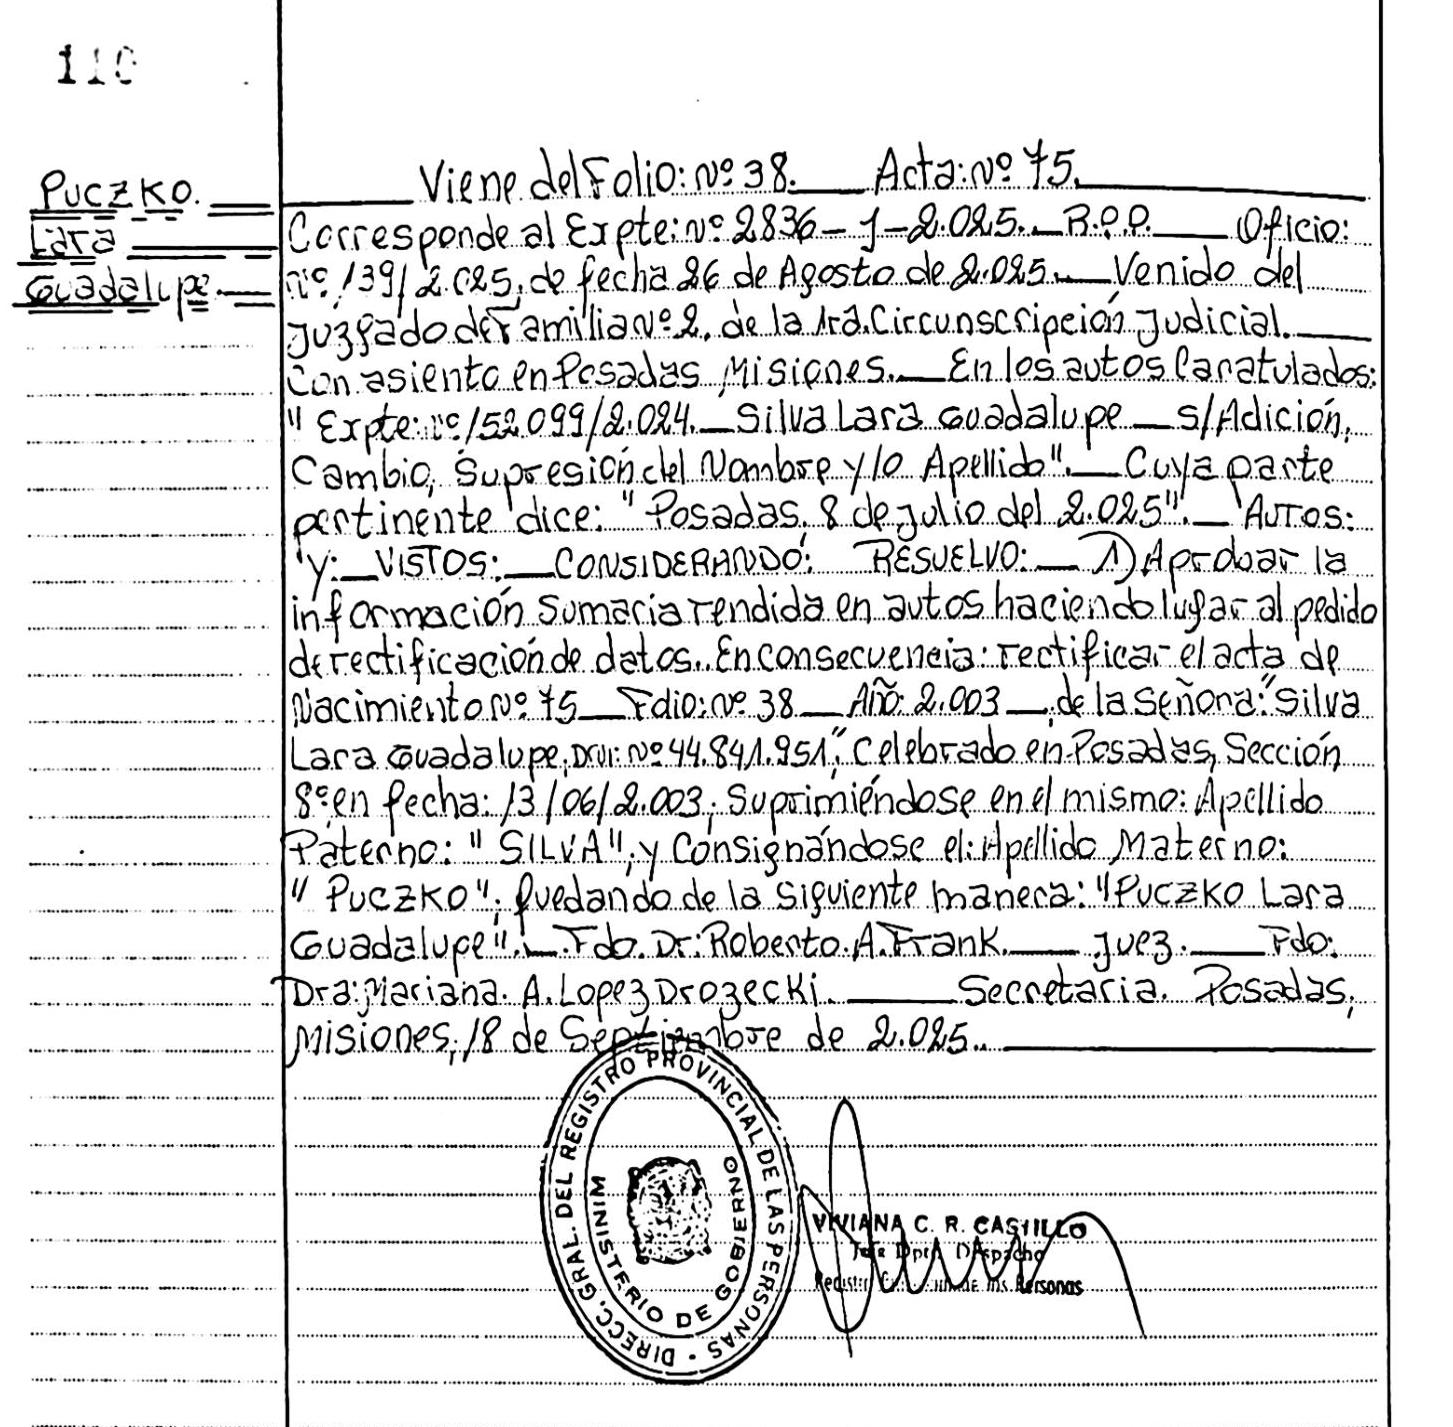 110
Puczko.
Lara
Guadalupe.
Viene del Folio: Nº 38. Acta: Nº 75.
Corresponde al Expte: Nº 2836 - J - 2.025. R.P.P. Oficio:
Nº 139/2.025, de fecha 26 de Agosto de 2.025. Venido del
Juzgado de Familia Nº 2, de la 1ra. Circunscripción Judicial.
Con asiento en Posadas, Misiones. En los autos Caratulados:
" Expte: Nº 152.099/2.024. Silva Lara Guadalupe s/Adición,
Cambio, Supresión del Nombre y/o Apellido". Cuya parte
pertinente dice: "Posadas, 8 de julio del 2.025". AUTOS:
Y: VISTOS: CONSIDERANDO: RESUELVO: 1) Aprobar la
información Sumaria rendida en autos haciendo lugar al pedido
de rectificación de datos. En Consecuencia: rectificar el acta de
Nacimiento Nº 75 Folio: Nº 38 Año: 2.003, de la Señora: "Silva
Lara Guadalupe, DNI: Nº 44.841.951", Celebrado en Posadas, Sección
8º en fecha: 13/06/2.003, Suprimiéndose en el mismo: Apellido
Paterno: "SILVA", y Consignándose el: Apellido Materno:
"PUCZKO"; Quedando de la siguiente manera: "PUCZKO Lara
Guadalupe". Fdo. Dr: Roberto. A. Frank. Juez. Fdo:
Dra: Mariana. A. Lopez Drozecki. Secretaria. Posadas,
Misiones, 18 de Septiembre de 2.025.
DIRECC. GRAL. DEL REGISTRO PROVINCIAL DE LAS PERSONAS -
MINISTERIO DE GOBIERNO
VIVIANA C. R. CASTILLO
Jefe Dpto. Despacho
Personas